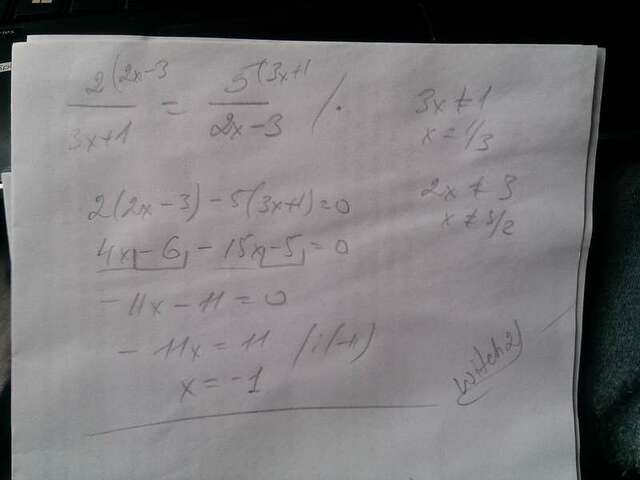 2(2x-3
5(3x+1
3x+1 = 2x-3 / ·
3x ≠ 1
x = 1/3
2x ≠ 3
x ≠ 3/2
2(2x-3)-5(3x+1)=0
4x-6-15x-5=0
-11x-11=0
-11x=11 /:(-11)
x=-1
witch21